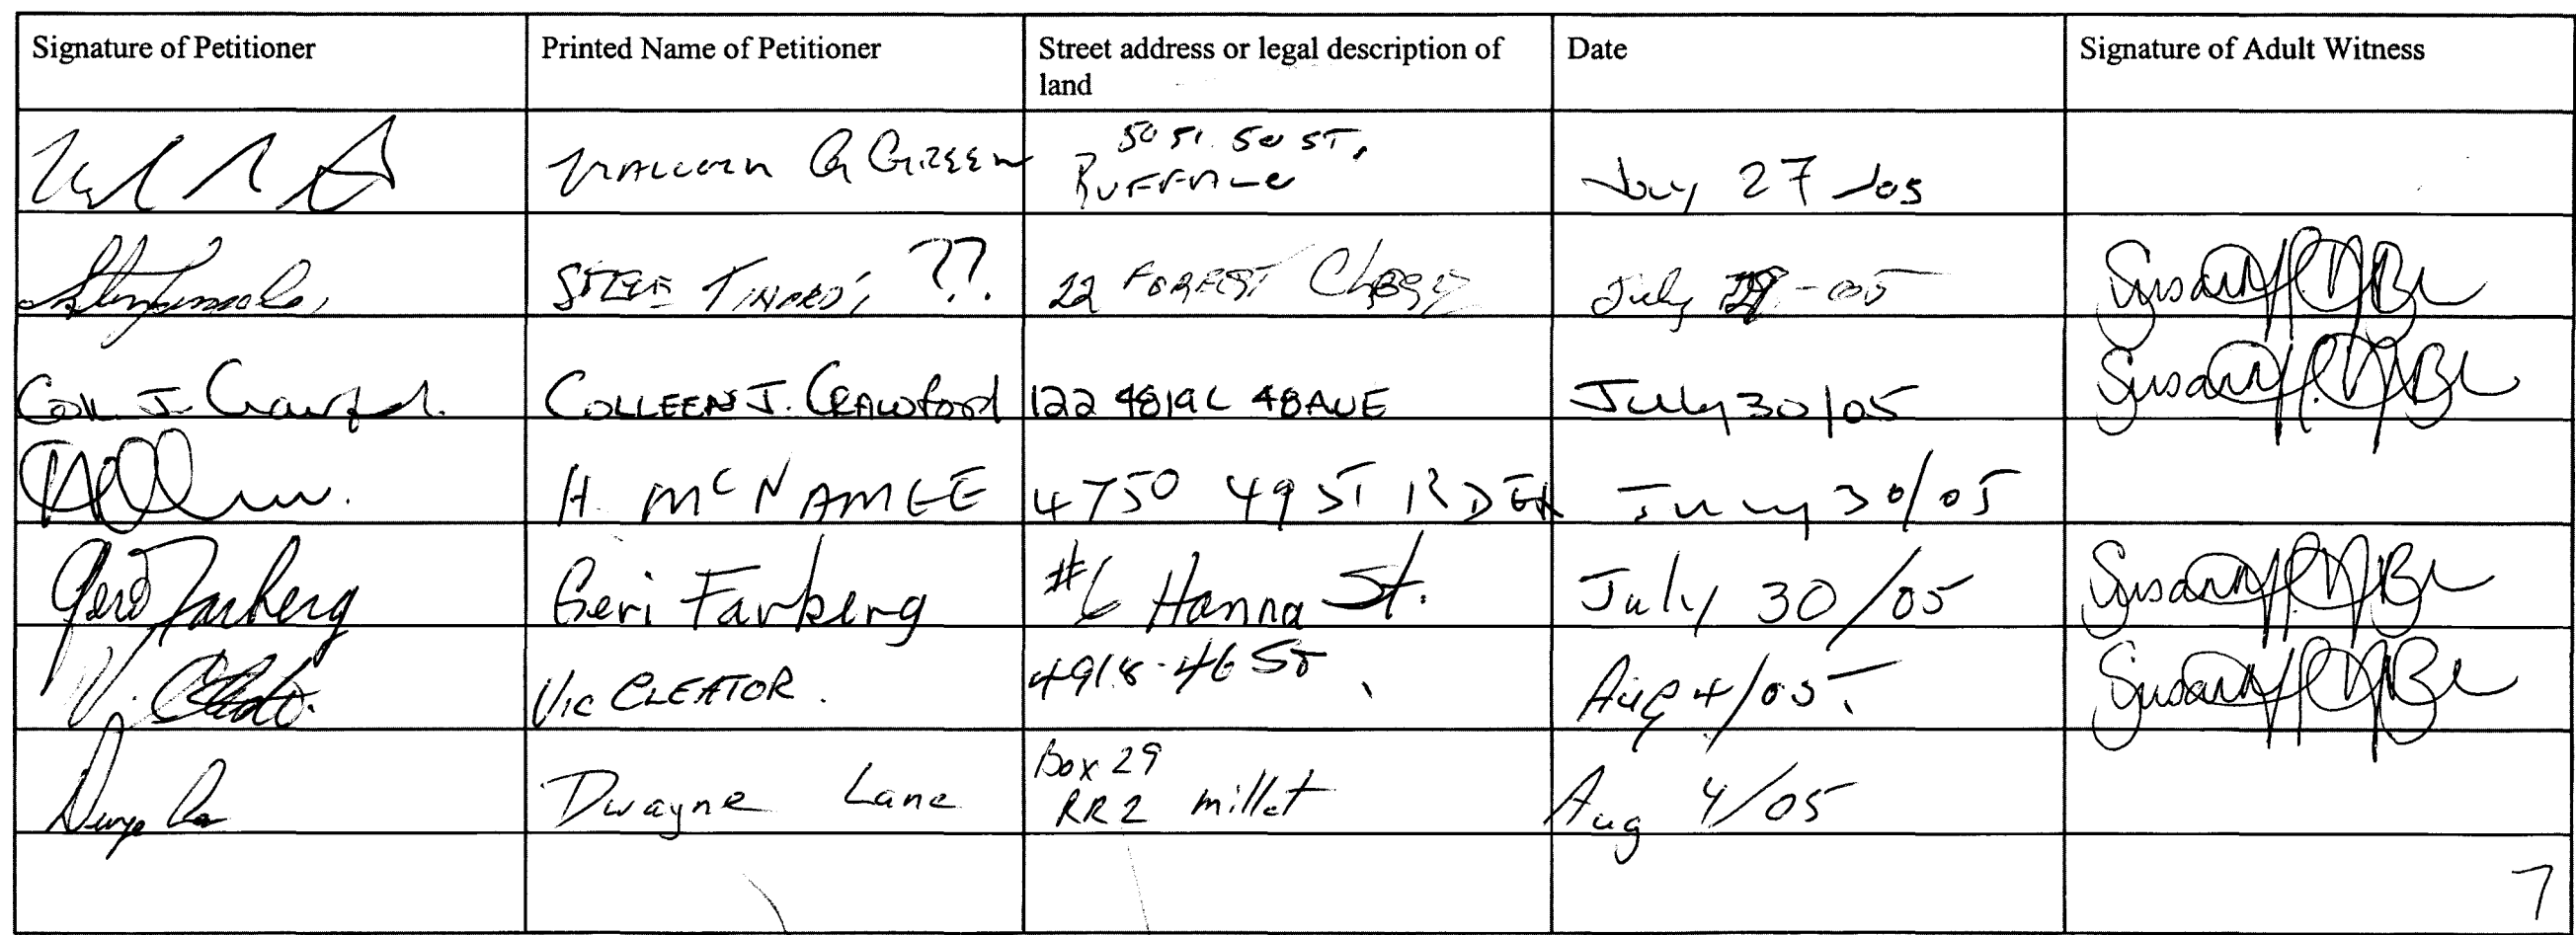 Signature of Petitioner
Printed Name of Petitioner
Street address or legal description of
land
Date
Signature of Adult Witness
G GREEN
5051. 50 ST.
BUFFALO
July 27/05
STEVE ??
22 FOREST
July -05
Susan
Coll. J. Crawford.
COLLEEN J. CRAWFORD
122 4819C 48 AVE
July 30/05
Susan
H. MCNAMEE
4750 49 ST
July 30/05
Geri Farberg
Geri Farberg
#6 Hanna St.
July 30/05
Susan
V.
Vic CLEATOR.
4918-46 ST
Aug 4/05.
Susan
Dwayne Lane
Box 29
RR2 millet
Aug 4/05
7